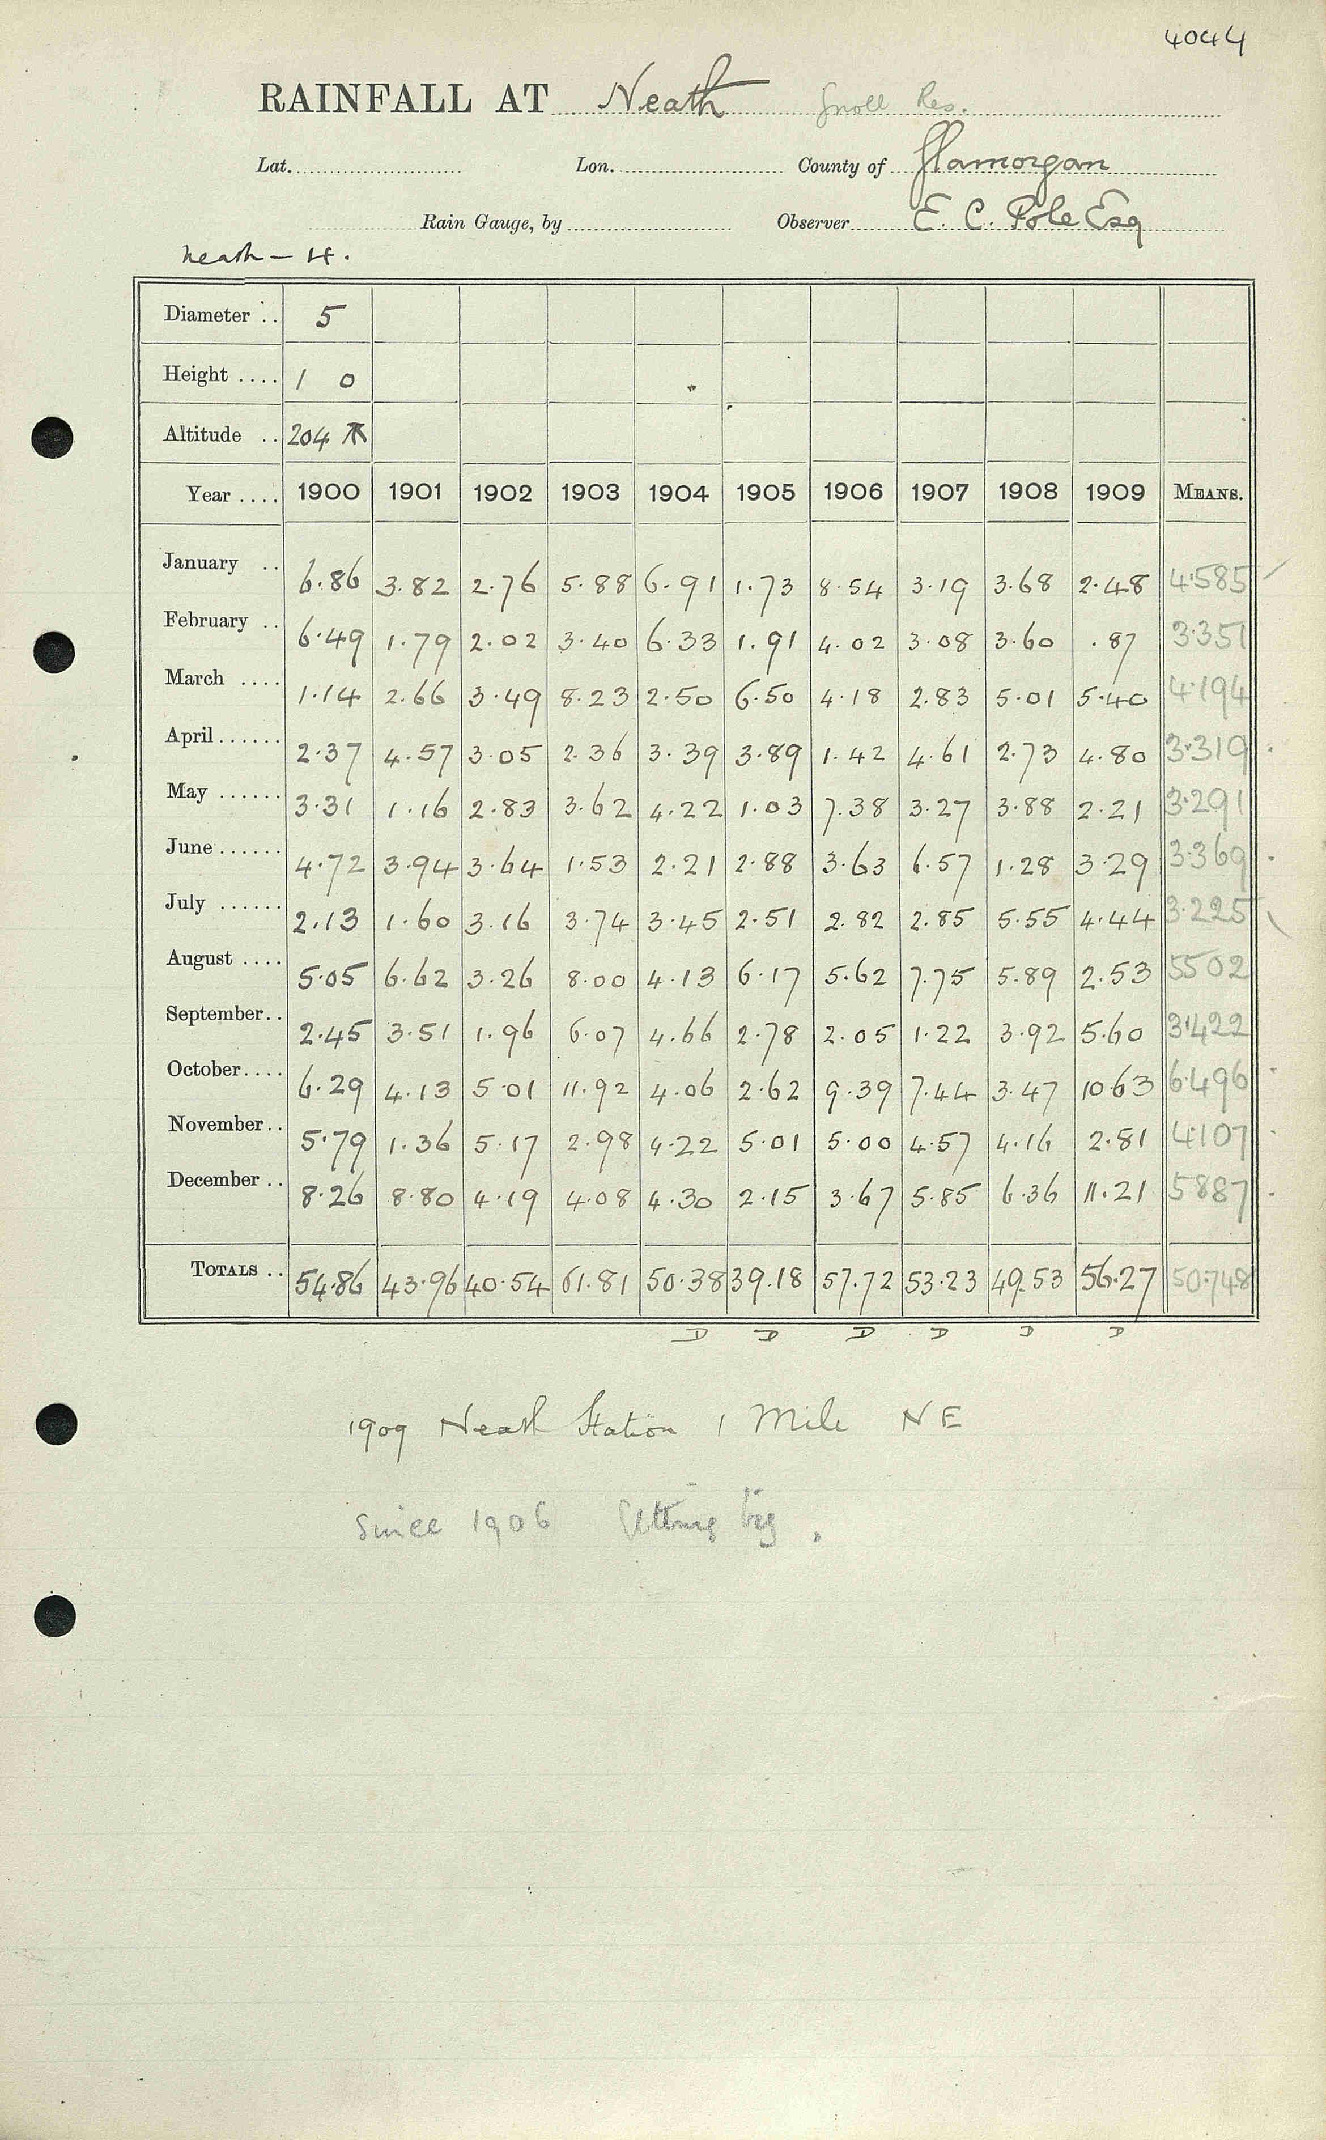 4044
RAINFALL AT Neath Gnoll Res.
Lat. Lon. County of Glamorgan
Rain Gauge, by Observer E. C. Pole Esq
Neath – H.
Diameter .. 5
Height .... 1 0
Altitude .. 204
Year .... 1900 1901 1902 1903 1904 1905 1906 1907 1908 1909 MEANS.
January .. 6.86 3.82 2.76 5.88 6.91 1.73 8.54 3.19 3.68 2.48 4.585
February .. 6.49 1.79 2.02 3.40 6.33 1.91 4.02 3.08 3.60 .87 3.351
March .... 1.14 2.66 3.49 8.23 2.50 6.50 4.18 2.83 5.01 5.40 4.194
April...... 2.37 4.57 3.05 2.36 3.39 3.89 1.42 4.61 2.73 4.80 3.319
May ...... 3.31 1.16 2.83 3.62 4.22 1.03 7.38 3.27 3.88 2.21 3.291
June...... 4.72 3.94 3.64 1.53 2.21 2.88 3.63 6.57 1.28 3.29 3.369
July ...... 2.13 1.60 3.16 3.74 3.45 2.51 2.82 2.85 5.55 4.44 3.225
August .... 5.05 6.62 3.26 8.00 4.13 6.17 5.62 7.75 5.89 2.53 5502
September.. 2.45 3.51 1.96 6.07 4.66 2.78 2.05 1.22 3.92 5.60 3.422
October.... 6.29 4.13 5.01 11.92 4.06 2.62 9.39 7.44 3.47 1063 6.496
November.. 5.79 1.36 5.17 2.98 4.22 5.01 5.00 4.57 4.16 2.81 4.107
December .. 8.26 8.80 4.19 4.08 4.30 2.15 3.67 5.85 6.36 11.21 5887
TOTALS .. 54.86 43.96 40.54 61.81 50.38 39.18 57.72 53.23 49.53 56.27 50.748
D D D D D D
1909 Neath Station 1 Mile NE
Since 1906 Getting big.